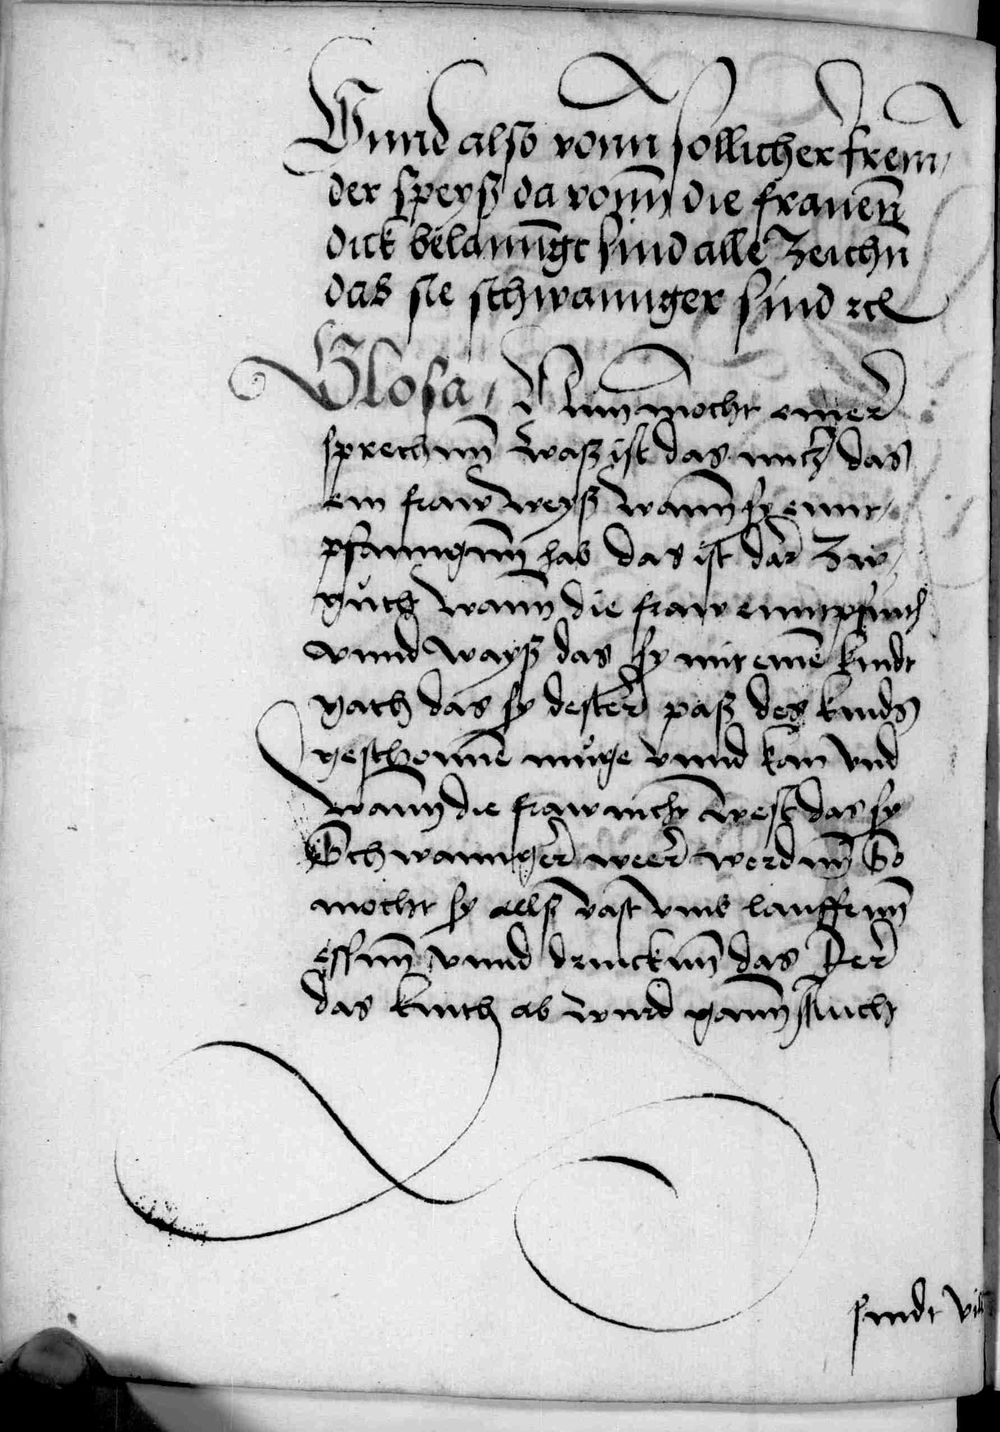 Vnnd also vonn sollicher frem,
der speyß da vonn die frauen
dick belanngt sind alle Zeichn
das sie schwannger sind ꝛc
Glosa, Nun mocht einer
sprechnn waß ist das nutz das
ein fraw weyß wann sy ennt,
pfanngnn hab das ist dar Zw
gutt wann die fraw enntpfinth
vnnd wayß das sy mit eine kindt
gath das sy dester paß des kinds
geschonne muge vnnd kan vnd
wann die fraw nicht west das sy
Schwannger weer wordnn So
mocht sy allß vast vmb lauffenn
essnn vnnd drincknn das Jer
das kinth ab wurd gann Auch
sindt vil